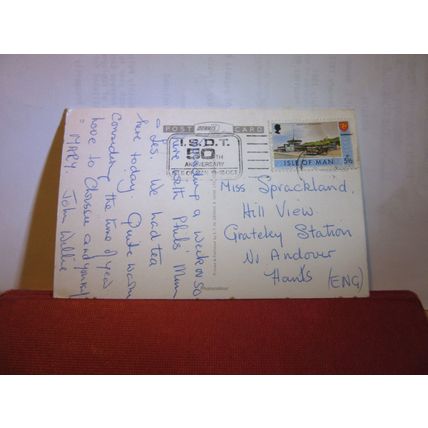 POST CARD
DENNIS
I.S.D.T.
50
ANNIVERSARY
ISLE OF MAN
5½
Having a week or so
here with Phil's Mum
& Les. We had tea
here today. Quite warm
Considering the time of year
Love to Chrissie and
MARY. John Willie
Miss Sprackland,
Hill View,
Grateley Station
Nr Andover
Hants (ENG)